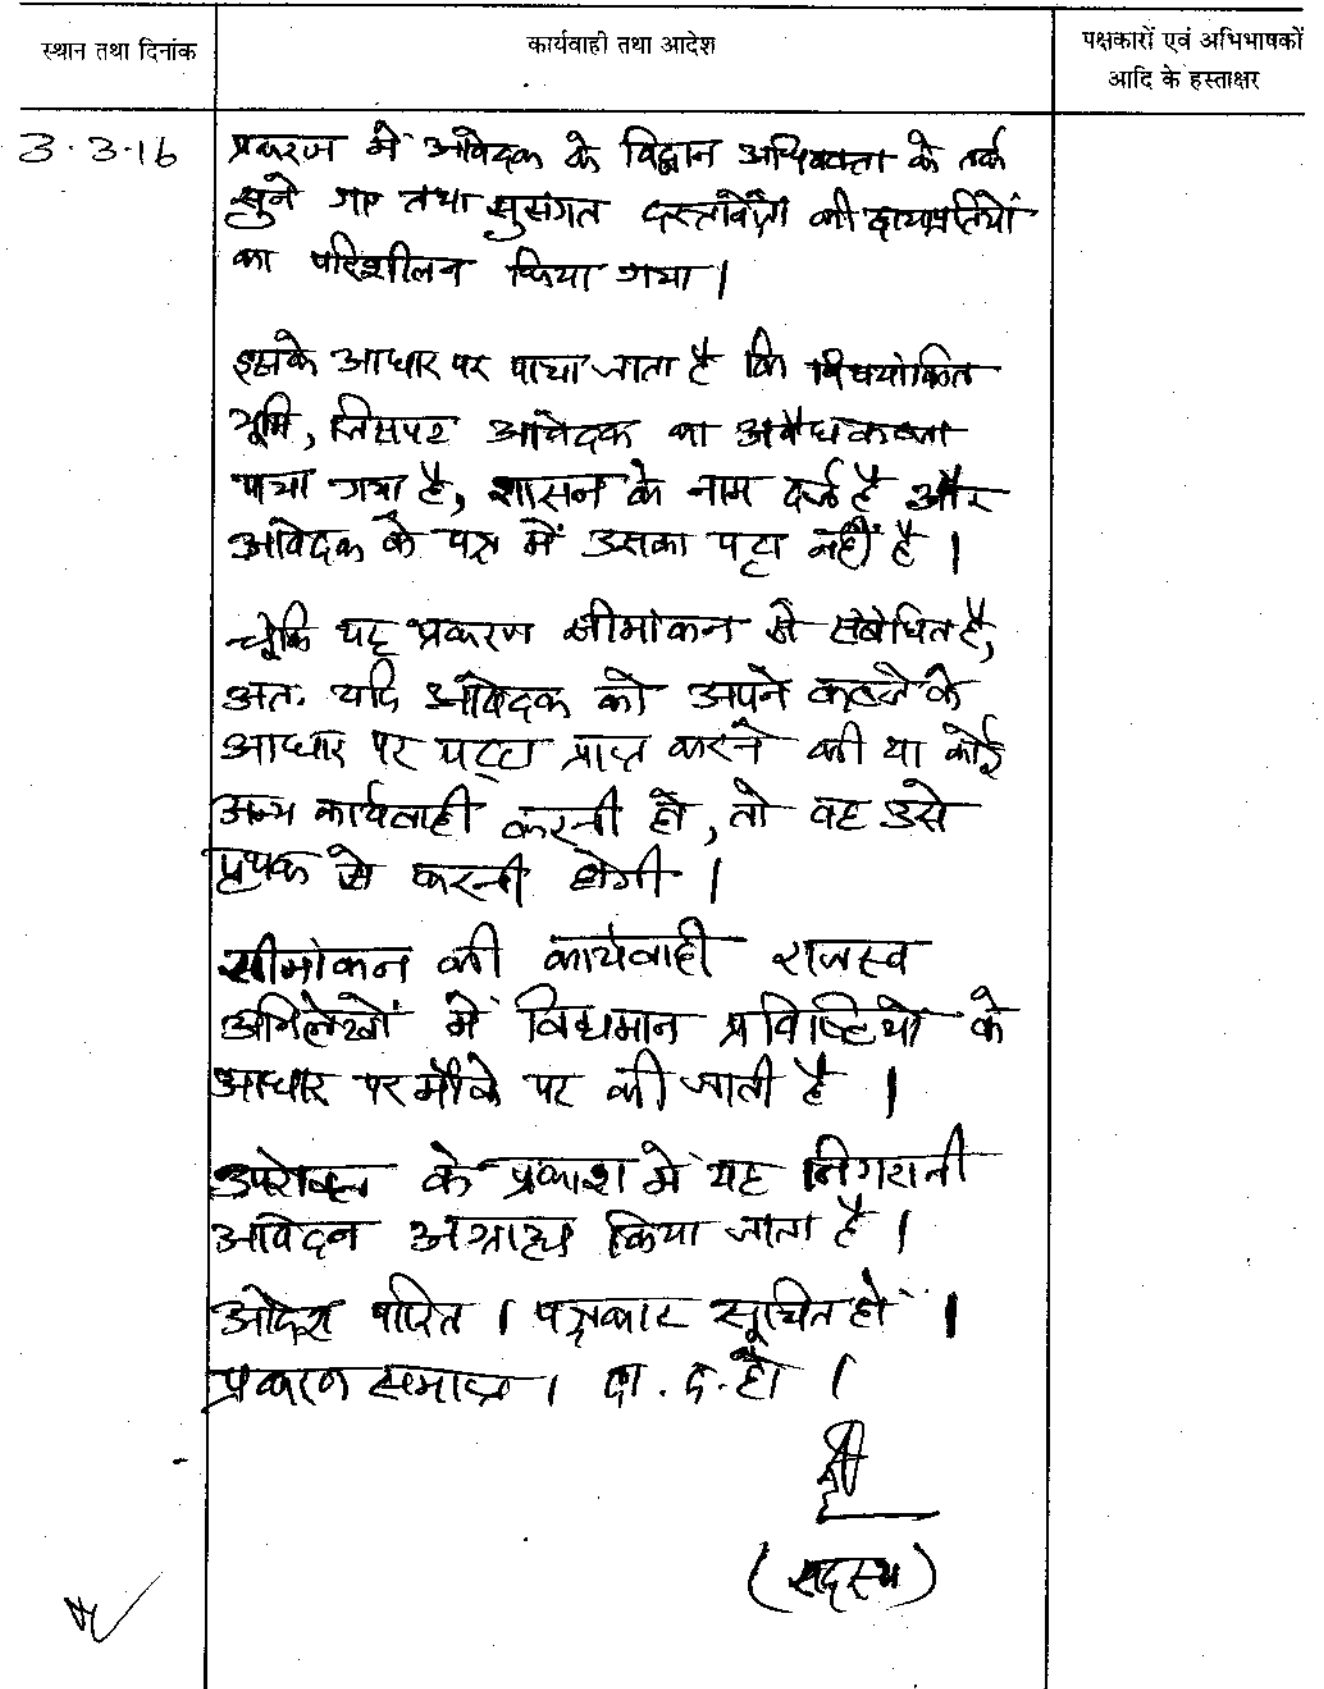 स्थान तथा दिनांक
कार्यवाही तथा आदेश
पक्षकारों एवं अभिभाषकों
आदि के हस्ताक्षर
3.3.16
प्रकरण में आवेदक के विद्वान अधिवक्ता के तर्क
सुने गए तथा सुसंगत दस्तावेजों की छायाप्रतियों
का परिशीलन किया गया।
इसके आधार पर पाया जाता है कि विषयांकित
भूमि, जिसपर आवेदक का अवैध कब्जा
पाया गया है, शासन के नाम दर्ज है और
आवेदक के पक्ष में उसका पट्टा नहीं है।
चूंकि यह प्रकरण सीमांकन से संबंधित है,
अतः यदि आवेदक को अपने कब्जे के
आधार पर पट्टा प्राप्त करने की या कोई
अन्य कार्यवाही करनी हो, तो वह उसे
पृथक से करनी होगी।
सीमांकन की कार्यवाही राजस्व
अभिलेखों में विद्यमान प्रविष्टियों के
आधार पर मौके पर की जाती है।
उपरोक्त के प्रकाश में यह निगरानी
आवेदन अग्राह्य किया जाता है।
आदेश पारित। पक्षकार सूचित हों।
प्रकरण समाप्त। दा. द. हो।
(सदस्य)